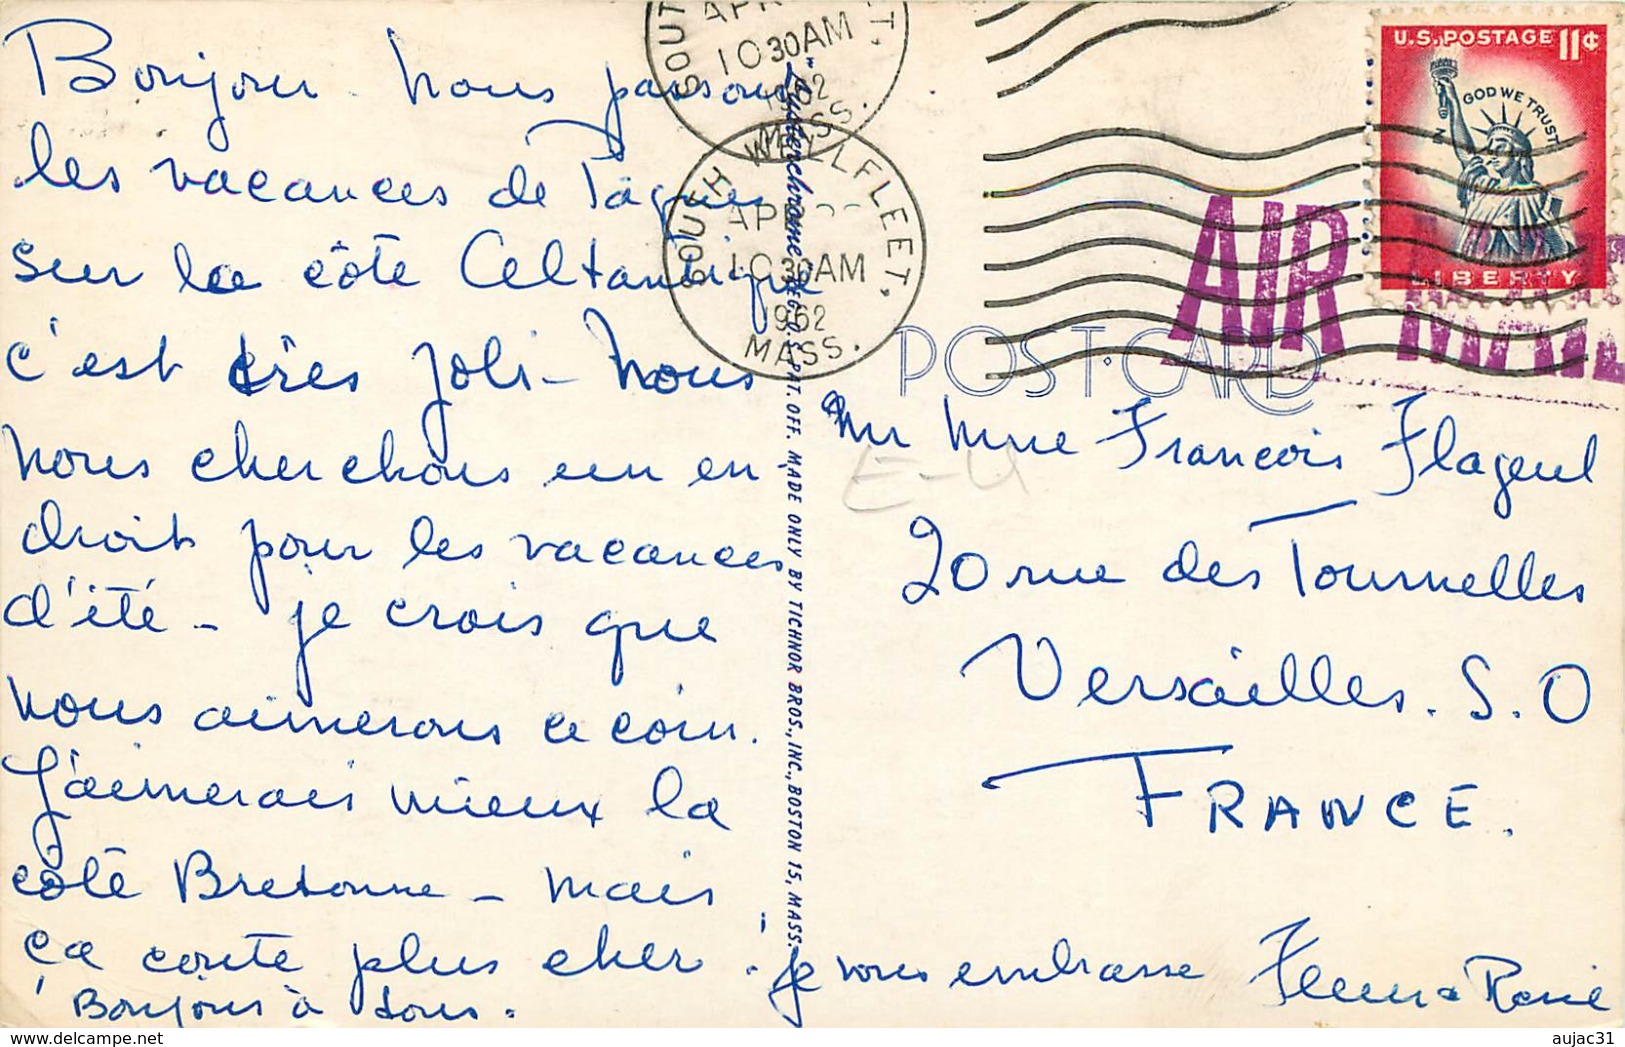 Bonjour. Nous passons
les vacances de Pâques
sur la côte Atlantique
c'est très joli - Nous
nous cherchons un en
droit pour les vacances
d'été - je crois que
nous aimerons ce coin.
J'aimerais mieux la
côte Bretonne - mais
ça coute plus cher !
Bonjour à tous.
je vous embrasse
René
SOUTH
APR
10 30 AM
1962
MASS.
SOUTH WELLFLEET,
APR
10 30 AM
1962
MASS.
U.S. POSTAGE 11¢
IN GOD WE TRUST
LIBERTY
AIR MAIL
POST CARD
"Lusterchrome" REG. U.S. PAT. OFF. MADE ONLY BY TICHNOR BROS., INC., BOSTON 15, MASS.
Mr Mme Francois Flageul
E-U
20 rue des Tournelles
Versailles. S. O
FRANCE.
aujac31